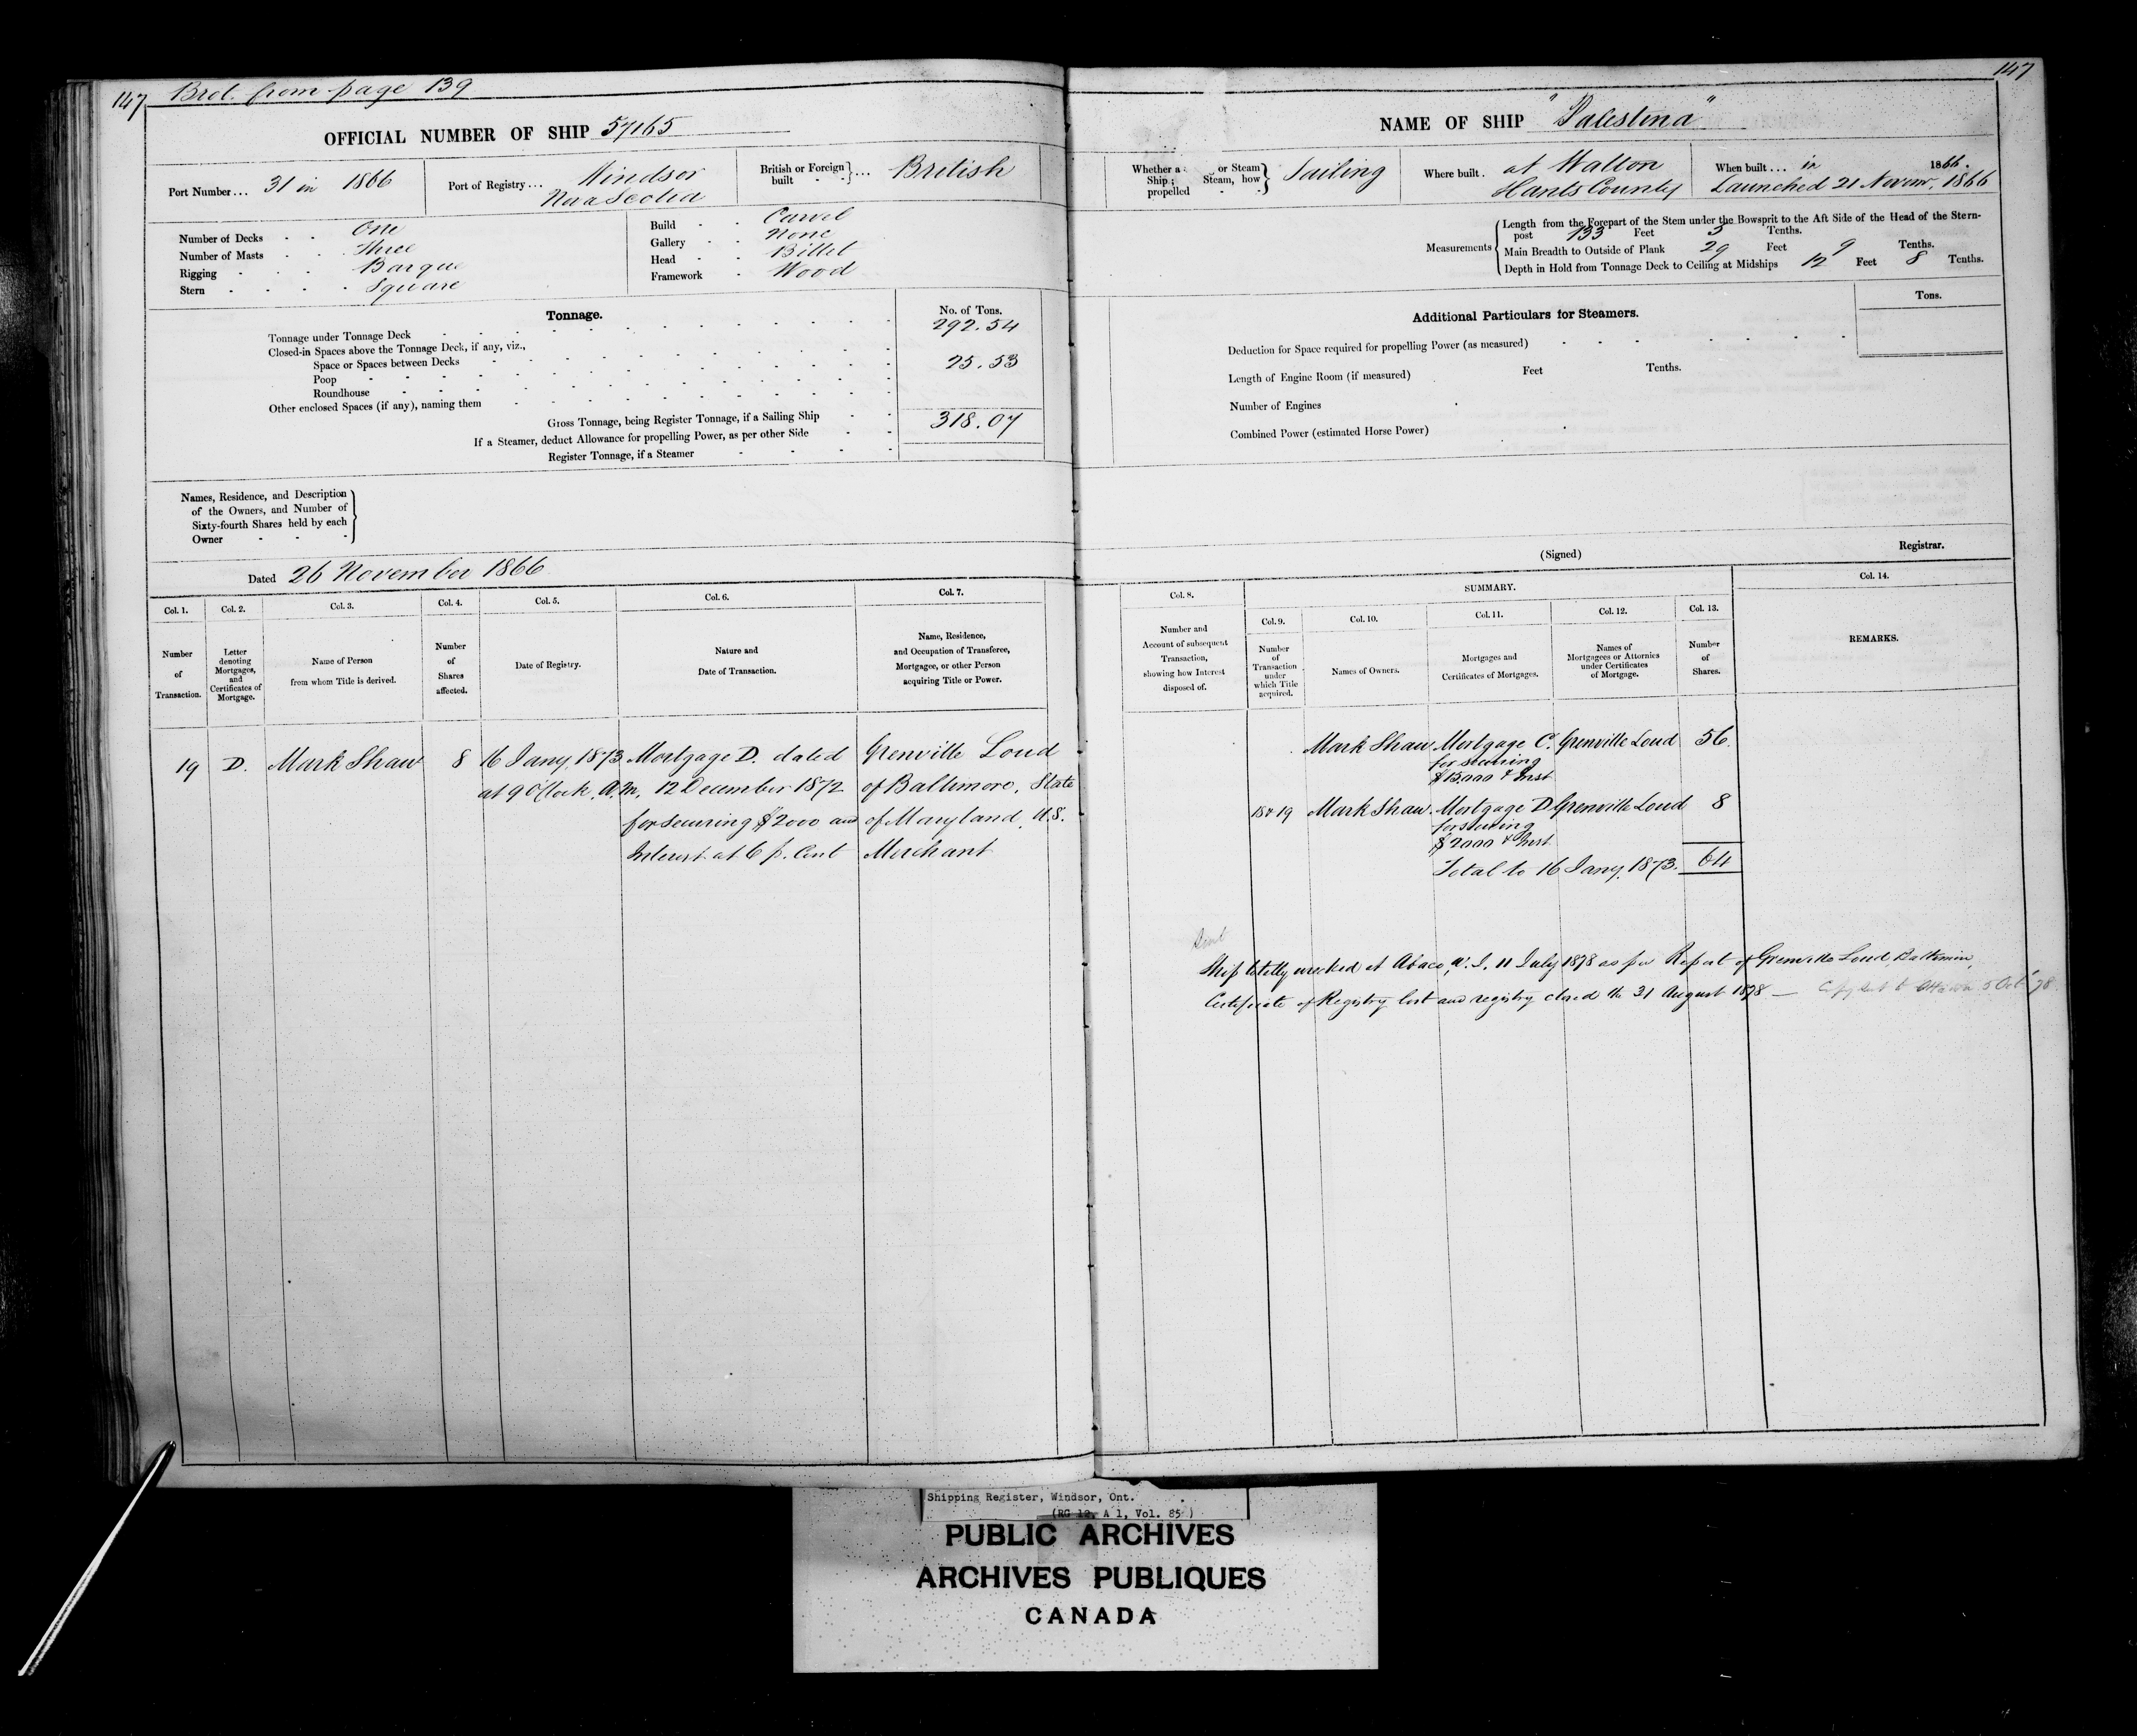 147 Brot. from page 139
OFFICIAL NUMBER OF SHIP 57165
Port Number... 31 in 1866
Port of Registry... Windsor
Nova Scotia
British or Foreign built }... British
Number of Decks One
Number of Masts Three
Rigging Barque
Stern Square
Build Carvel
Gallery None
Head Billet
Framework Wood
Tonnage.
No. of Tons.
Tonnage under Tonnage Deck 292.54
Closed-in Spaces above the Tonnage Deck, if any, viz.,
Space or Spaces between Decks 25.53
Poop
Roundhouse
Other enclosed Spaces (if any), naming them
Gross Tonnage, being Register Tonnage, if a Sailing Ship 318.07
If a Steamer, deduct Allowance for propelling Power, as per other Side
Register Tonnage, if a Steamer
Names, Residence, and Description
of the Owners, and Number of
Sixty-fourth Shares held by each
Owner
Dated 26 November 1866
Col. 1. Col. 2. Col. 3. Col. 4. Col. 5. Col. 6. Col. 7.
Number of Transaction.
Letter denoting Mortgages, and Certificates of Mortgage.
Name of Person from whom Title is derived.
Number of Shares affected.
Date of Registry.
Nature and Date of Transaction.
Name, Residence, and Occupation of Transferee, Mortgagee, or other Person acquiring Title or Power.
19 D. Mark Shaw 8 16 Jany. 1873 Mortgage D. dated Grenville Loud
at 9 O'Clock A.M. 12 December 1872 of Baltimore, State
for securing $2000 and of Maryland, U.S.
Interest at 6 p. Cent Merchant
147
NAME OF SHIP "Palestina"
Whether a Ship; propelled or Steam Steam, how } Sailing
Where built. at Walton
Hants County
When built... in 1866.
Launched 21 Novemr. 1866
Measurements
Length from the Forepart of the Stem under the Bowsprit to the Aft Side of the Head of the Stern-
post 133 Feet 3 Tenths.
Main Breadth to Outside of Plank 29 Feet 9 Tenths.
Depth in Hold from Tonnage Deck to Ceiling at Midships 12 Feet 8 Tenths.
Additional Particulars for Steamers.
Tons.
Deduction for Space required for propelling Power (as measured)
Length of Engine Room (if measured) Feet Tenths.
Number of Engines
Combined Power (estimated Horse Power)
(Signed) Registrar.
Col. 8. SUMMARY. Col. 14.
Col. 9. Col. 10. Col. 11. Col. 12. Col. 13.
Number and Account of subsequent Transaction, showing how Interest disposed of.
Number of Transaction under which Title acquired.
Names of Owners.
Mortgages and Certificates of Mortgages.
Names of Mortgagees or Attornies under Certificates of Mortgage.
Number of Shares.
REMARKS.
Mark Shaw Mortgage C. Grenville Loud 56
for securing
$15000 & Inst
18 & 19 Mark Shaw. Mortgage D Grenville Loud 8
for securing
$2000 & Inst
Total to 16 Jany. 1873. 64
Ship totally wrecked at Abaco, W.I. 11 July 1878 as per Report of Grenville Loud, Baltimore,
Certificate of Registry lost and registry closed the 31 August 1878 — Copy sent to Ottawa 5 Oct '78.
Shipping Register, Windsor, Ont.
(RG 12, A 1, Vol. 85)
PUBLIC ARCHIVES
ARCHIVES PUBLIQUES
CANADA